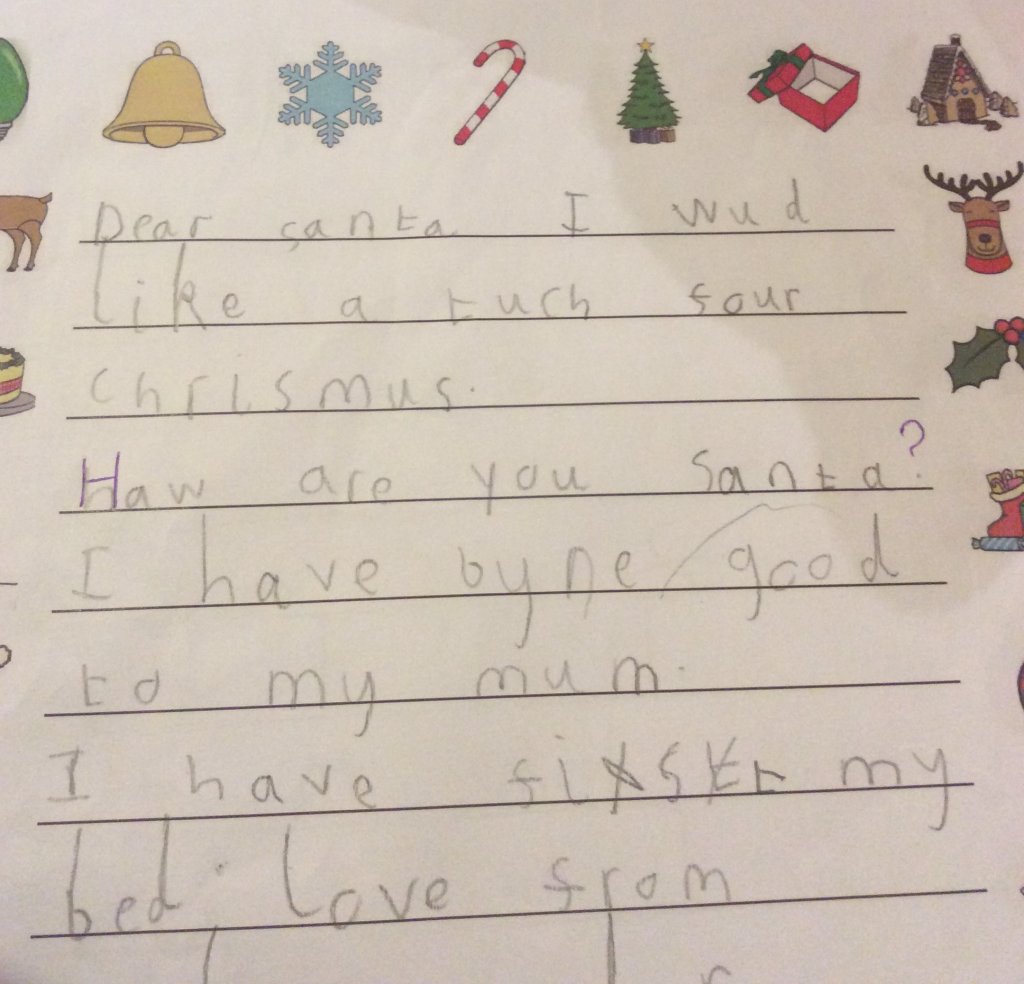 Dear santa I wud
like a tuch four
chrismus.
Haw are you Santa?
I have byne good
to my mum.
I have my
bed. love from